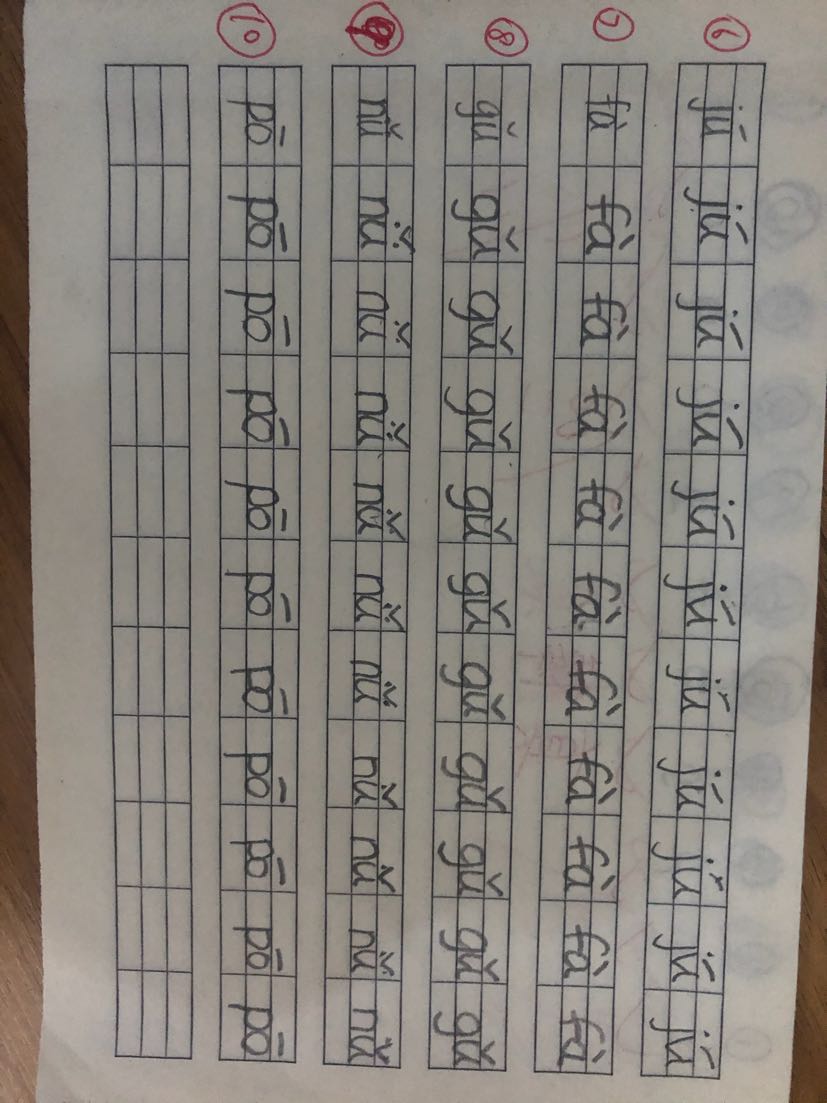 ⑥ jú jú jú jú jú jú jú jú jú jú jú
⑦ fà fà fà fà fà fà fà fà fà fà fà
⑧ gǔ gǔ gǔ gǔ gǔ gǔ gǔ gǔ gǔ gǔ gǔ
⑨ nǚ nǚ nǚ nǚ nǚ nǚ nǚ nǚ nǚ nǚ nǚ
⑩ pō pō pō pō pō pō pō pō pō pō pō